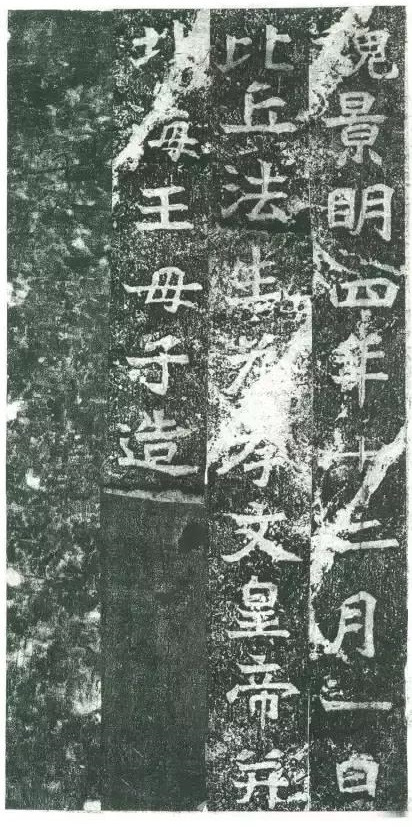 魏景明四年十二月一日
比丘法生為孝文皇帝并
北海王母子造